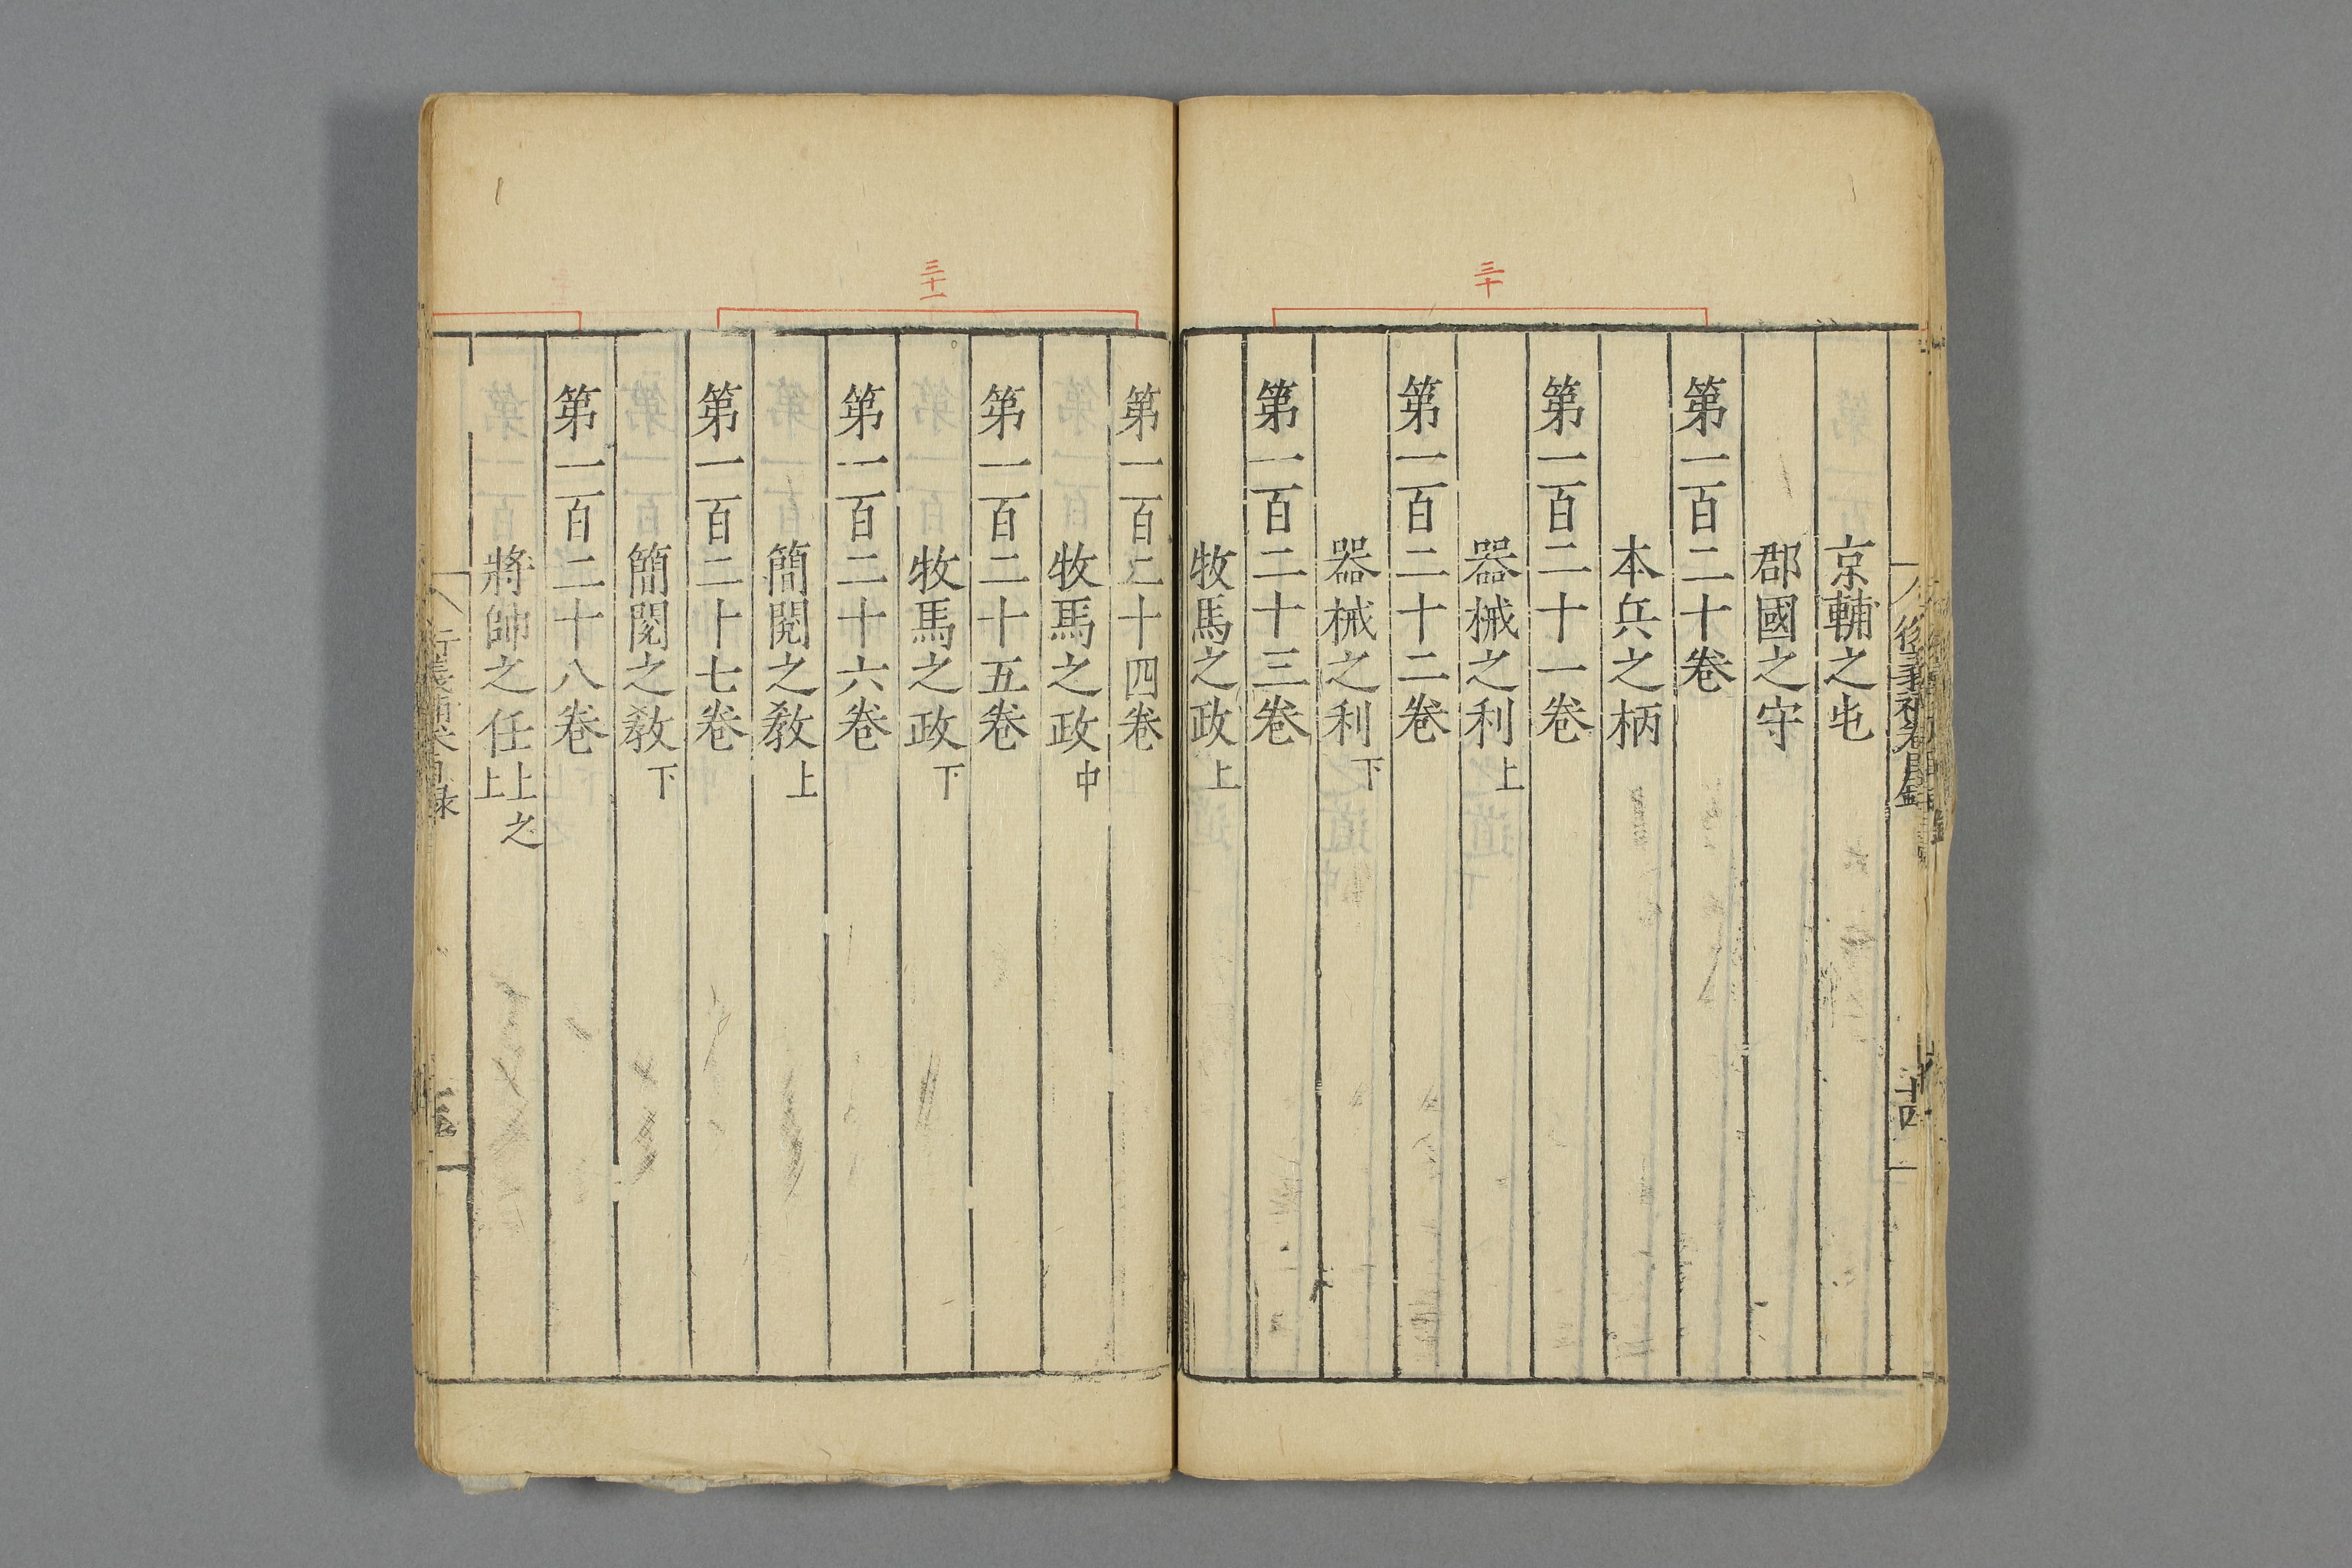 三十
京輔之屯
郡國之守
第一百二十卷
本兵之柄
第一百二十一卷
器械之利上
第一百二十二卷
器械之利下
第一百二十三卷
牧馬之政上
三十一
第一百二十四卷
牧馬之政中
第一百二十五卷
牧馬之政下
第一百二十六卷
簡閱之教上
第一百二十七卷
簡閱之教下
第一百二十八卷
將帥之任上之上